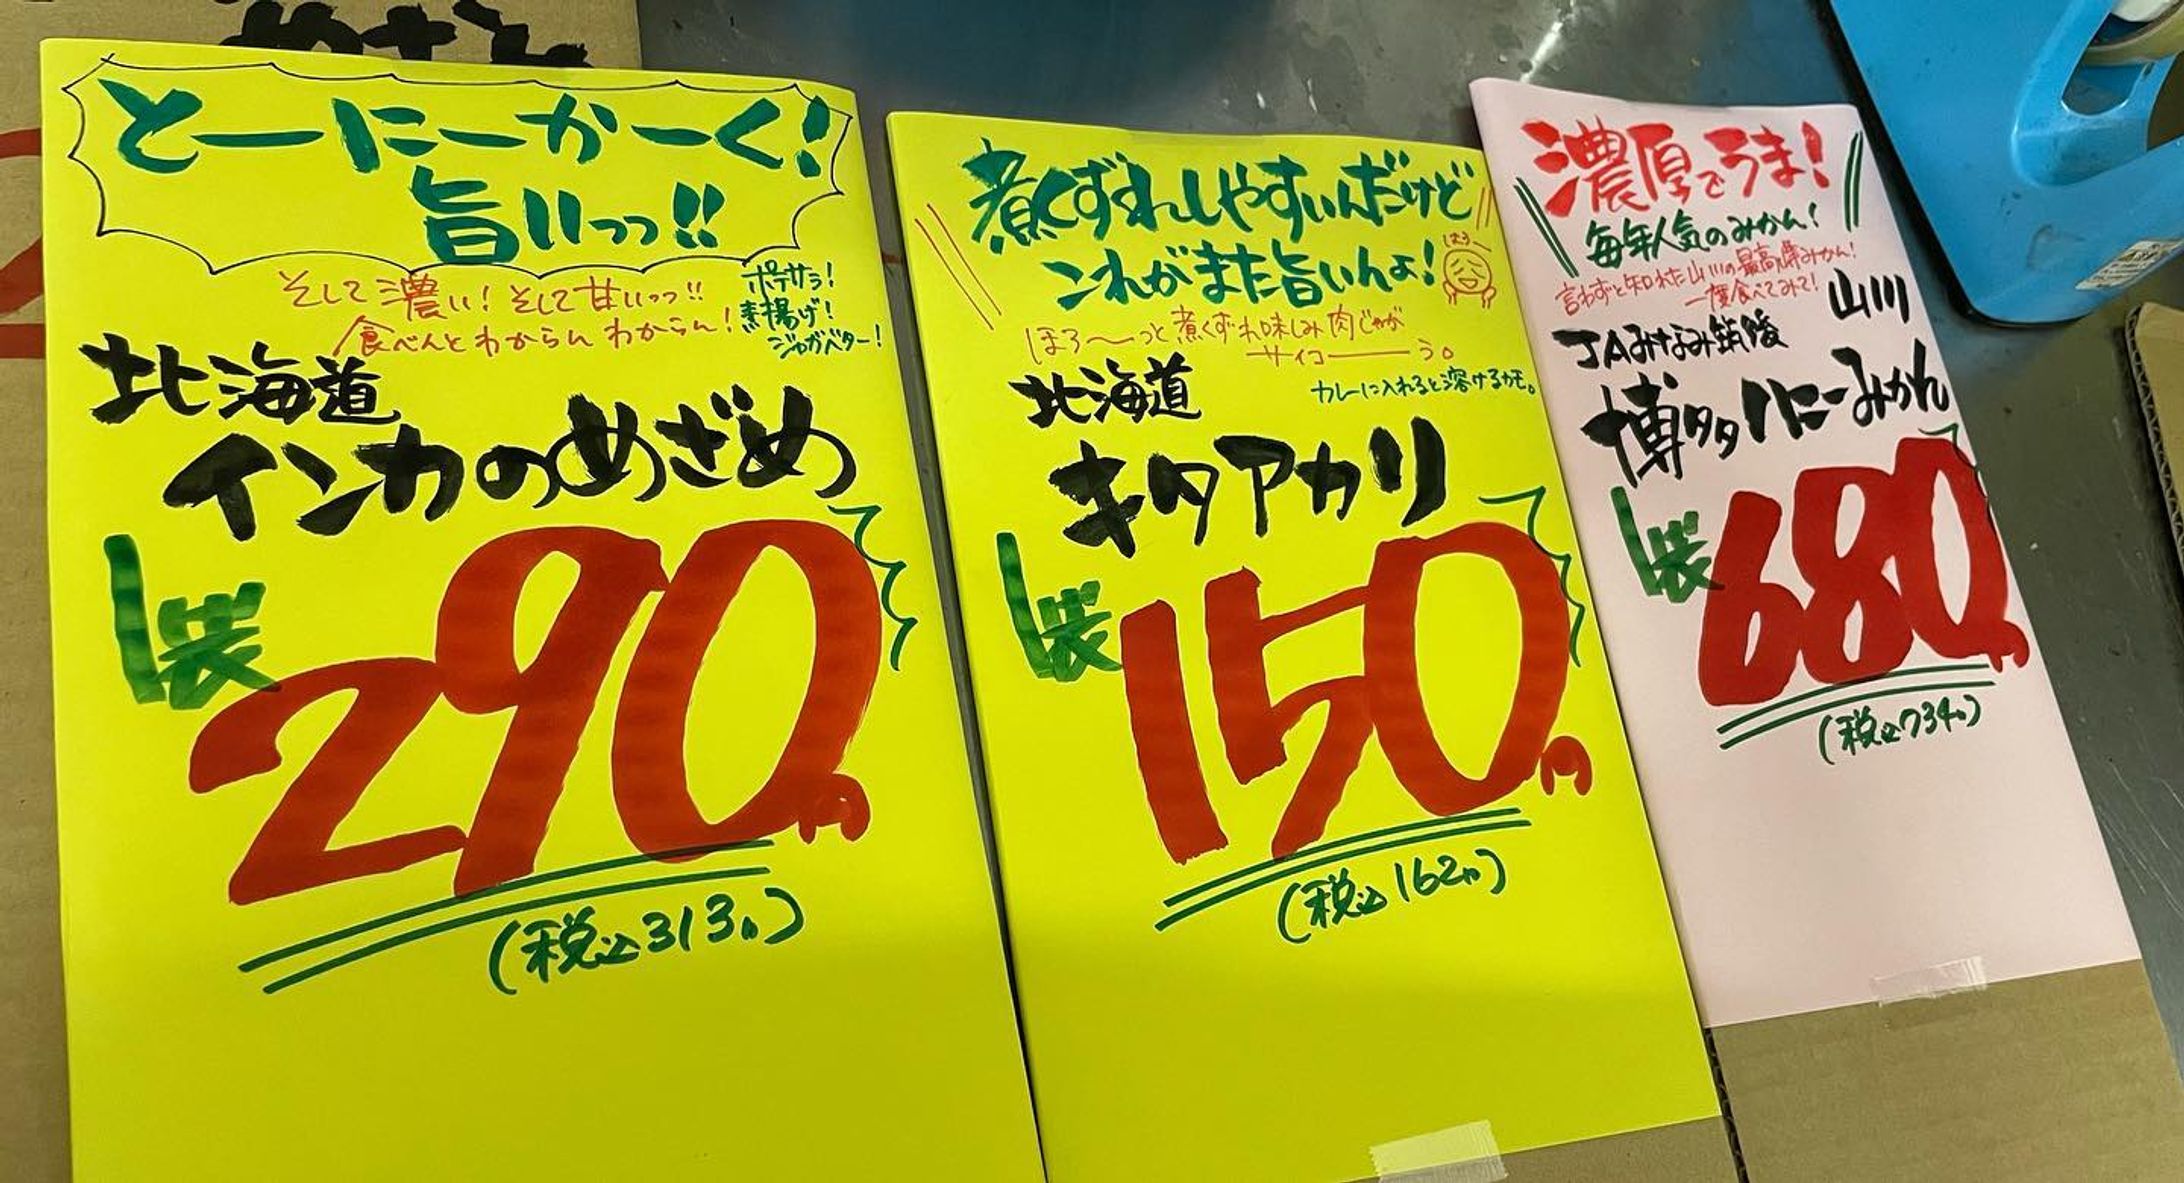 とーにーかーく!
旨いっっ!!
そして濃い!そして甘いっっ!!
食べんとわからんわからん!
ポテサラ!
素揚げ!
ジャガバター!
北海道
インカのめざめ
1袋
290円
(税込313円)
煮くずれしやすいんだけど
これがまた旨いんよ!
ほろ〜っと煮くずれ味しみ肉じゃが
サイコーーう。
カレーに入れると溶けるかも。
北海道
キタアカリ
1袋
150円
(税込162円)
濃厚でうま!
毎年人気のみかん!
言わずと知れた山川の最高峰みかん!
一度食べてみて!
山川
JAみなみ筑後
博多ハニーみかん
1袋
680円
(税込734円)